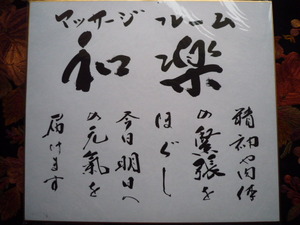 マッサージ ルーム
和楽
精神や肉体
の緊張を
ほぐし
今日明日へ
の元氣を
届けます